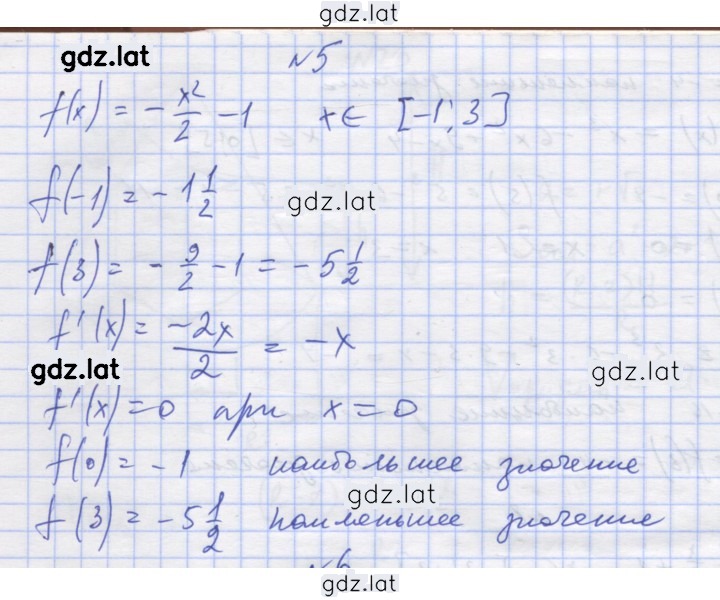 gdz.lat
gdz.lat
№5
f(x) = -x²/2 - 1 x ∈ [-1; 3]
f(-1) = -1 1/2
gdz.lat
f(3) = -9/2 - 1 = -5 1/2
f'(x) = -2x/2 = -x
gdz.lat
gdz.lat
f'(x) = 0 при x = 0
f(0) = -1 наибольшее значение
gdz.lat
f(3) = -5 1/2 наименьшее значение
№6
gdz.lat